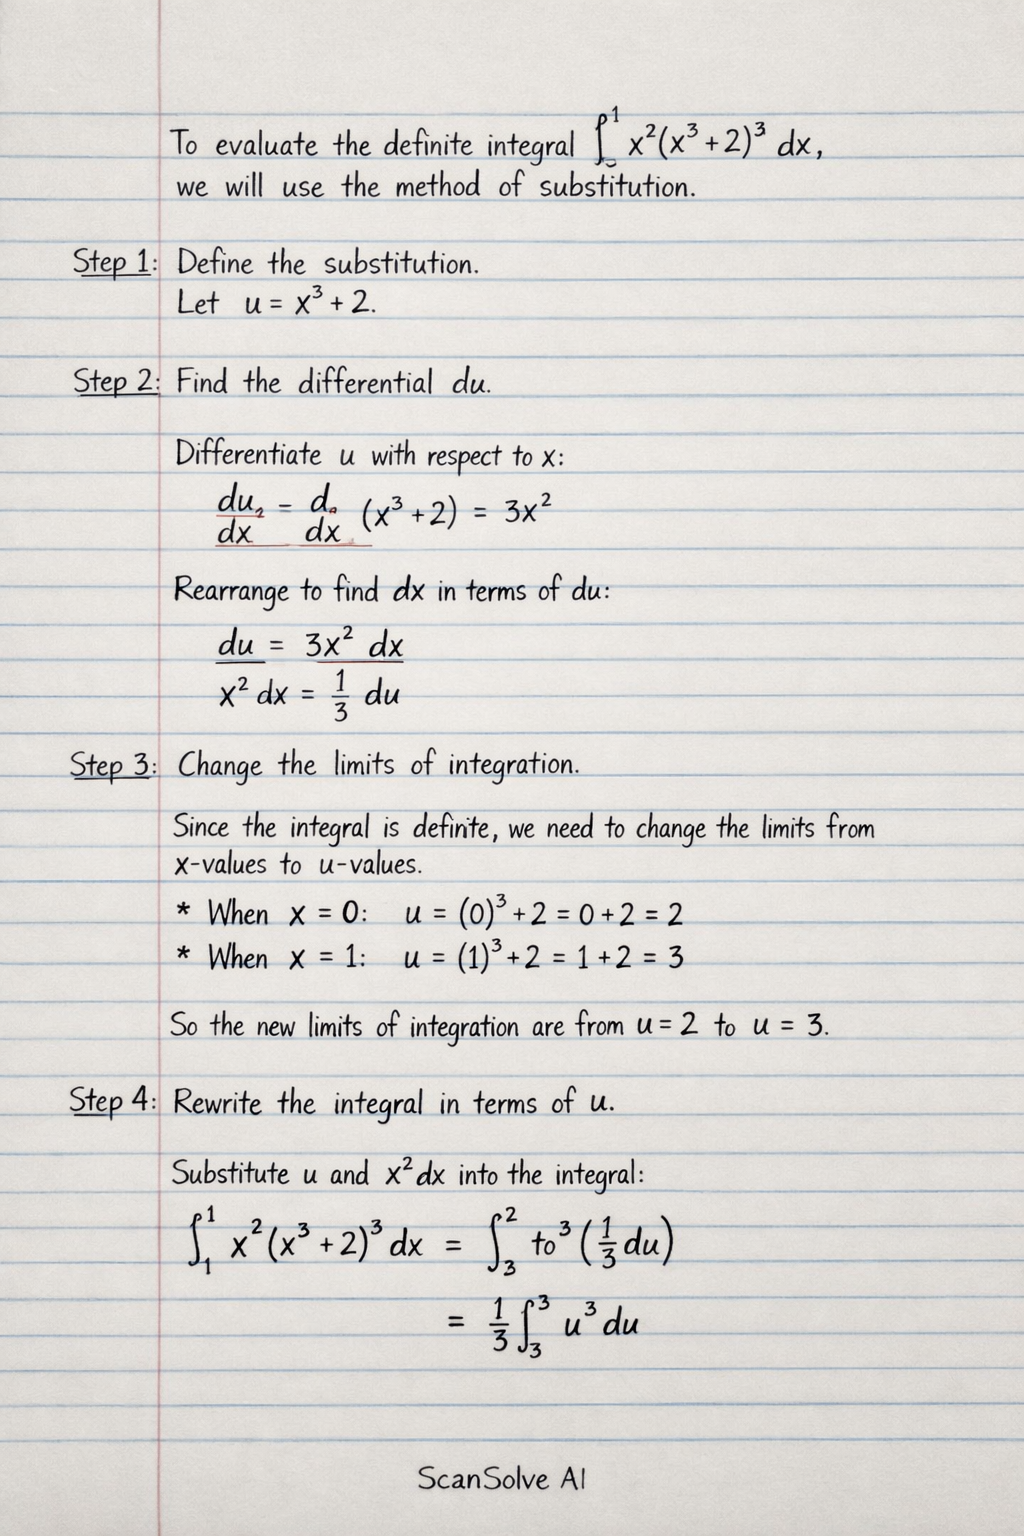 To evaluate the definite integral ∫₀¹ x²(x³ + 2)³ dx,
we will use the method of substitution.
Step 1: Define the substitution.
Let u = x³ + 2.
Step 2: Find the differential du.
Differentiate u with respect to x:
du₂/dx = d/dx (x³ + 2) = 3x²
Rearrange to find dx in terms of du:
du = 3x² dx
x² dx = 1/3 du
Step 3: Change the limits of integration.
Since the integral is definite, we need to change the limits from
x-values to u-values.
* When x = 0: u = (0)³ + 2 = 0 + 2 = 2
* When x = 1: u = (1)³ + 2 = 1 + 2 = 3
So the new limits of integration are from u = 2 to u = 3.
Step 4: Rewrite the integral in terms of u.
Substitute u and x² dx into the integral:
∫₁¹ x²(x³ + 2)³ dx = ∫₃² to³ (1/3 du)
= 1/3 ∫₃³ u³ du
ScanSolve AI